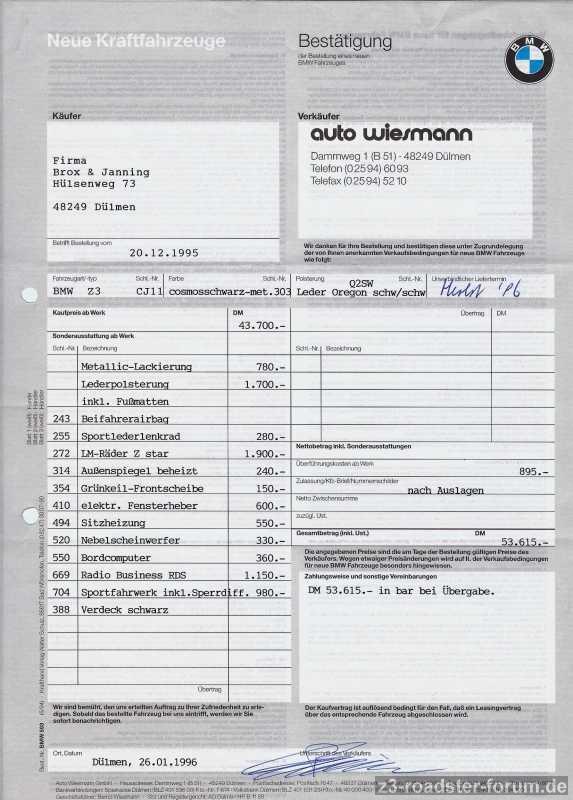 Neue Kraftfahrzeuge
Bestätigung
der Bestellung eines neuen
BMW Fahrzeuges
BMW
Käufer
Verkäufer
Firma
Brox & Janning
Hülsenweg 73
48249 Dülmen
auto wiesmann
Dammweg 1 (B 51) - 48249 Dülmen
Telefon (0 25 94) 60 93
Telefax (0 25 94) 52 10
Betrifft Bestellung vom
20.12.1995
Wir danken für Ihre Bestellung und bestätigen diese unter Zugrundelegung
der von Ihnen anerkannten Verkaufsbedingungen für neue BMW Fahrzeuge
wie folgt:
Fahrzeugart/-typ Schl.-Nr. Farbe Schl.-Nr. Polsterung Schl.-Nr. Unverbindlicher Liefertermin
BMW Z3 CJ11 cosmosschwarz-met.303 Q2SW Leder Oregon schw/schw Herbst '96
Kaufpreis ab Werk DM
43.700.-
Übertrag DM
Sonderausstattung ab Werk
Schl.-Nr. Bezeichnung
Schl.-Nr. Bezeichnung
Metallic-Lackierung 780.-
Lederpolsterung 1.700.-
inkl. Fußmatten
243 Beifahrerairbag
255 Sportlederlenkrad 280.-
272 LM-Räder Z star 1.900.-
314 Außenspiegel beheizt 240.-
354 Grünkeil-Frontscheibe 150.-
410 elektr. Fensterheber 600.-
494 Sitzheizung 550.-
520 Nebelscheinwerfer 330.-
550 Bordcomputer 360.-
669 Radio Business RDS 1.150.-
704 Sportfahrwerk inkl.Sperrdiff. 980.-
388 Verdeck schwarz
Übertrag
Nettobetrag inkl. Sonderausstattungen
Überführungskosten ab Werk
895.-
Zulassung/Kfb-Brief/Nummernschilder
nach Auslagen
Netto Zwischensumme
zuzügl. Ust.
Gesamtbetrag (inkl. Ust.) DM
53.615.-
Die angegebenen Preise sind die am Tage der Bestellung gültigen Preise des
Verkäufers. Wegen etwaiger Preisänderungen wird auf II. der Verkaufsbedingungen
für neue BMW Fahrzeuge besonders hingewiesen.
Zahlungsweise und sonstige Vereinbarungen
DM 53.615.- in bar bei Übergabe.
Wir sind bemüht, den uns erteilten Auftrag zu Ihrer Zufriedenheit zu erle-
digen. Sobald das bestellte Fahrzeug bei uns eintrifft, werden wir Sie
sofort benachrichtigen.
Der Kaufvertrag ist auflösend bedingt für den Fall, daß ein Leasingvertrag
über das entsprechende Fahrzeug abgeschlossen wird.
Ort, Datum
Dülmen, 26.01.1996
Unterschrift des Verkäufers
z3-roadster-forum.de